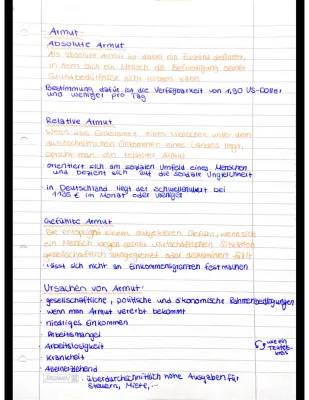 Armut
Absolute Armut
Als absolute Armut ist dabei ein Zustand definiert,
in dem sich ein Mensch die Befriedigung seiner
Grundbedürfnisse nicht leisten kann.
Bestimmung dafür ist die Verfügbarkeit von 1,90 US-Dollar
und weniger pro Tag
Relative Armut
Wenn das Einkommen eines Menschen unter dem
durchschnittlichen Einkommen eines Landes liegt,
spricht man von relativer Armut
orientiert sich am sozialen Umfeld eines Menschen
und bezieht sich auf die soziale Ungleichheit
in Deutschland liegt der Schwellenwert bei
1135 € im Monat oder weniger
Gefühlte Armut
Sie entspringt einem subjektiven Gefühl, wenn sich
ein Mensch wegen seiner wirtschaftlichen Situation
gesellschaftlich ausgegrenzt oder diskriminiert fühlt
lässt sich nicht an Einkommensgrenzen festmachen
Ursachen von Armut:
• gesellschaftliche, politische und ökonomische Rahmenbedingungen
• wenn man Armut vererbt bekommt
• niedriges Einkommen
Arbeitsmangel
• Arbeitslosigkeit
wie ein
Teufels-
kreis
• Krankheit
• Alleinerziehend
• überdurchschnittlich hohe Ausgaben für
Steuern, Miete, ...